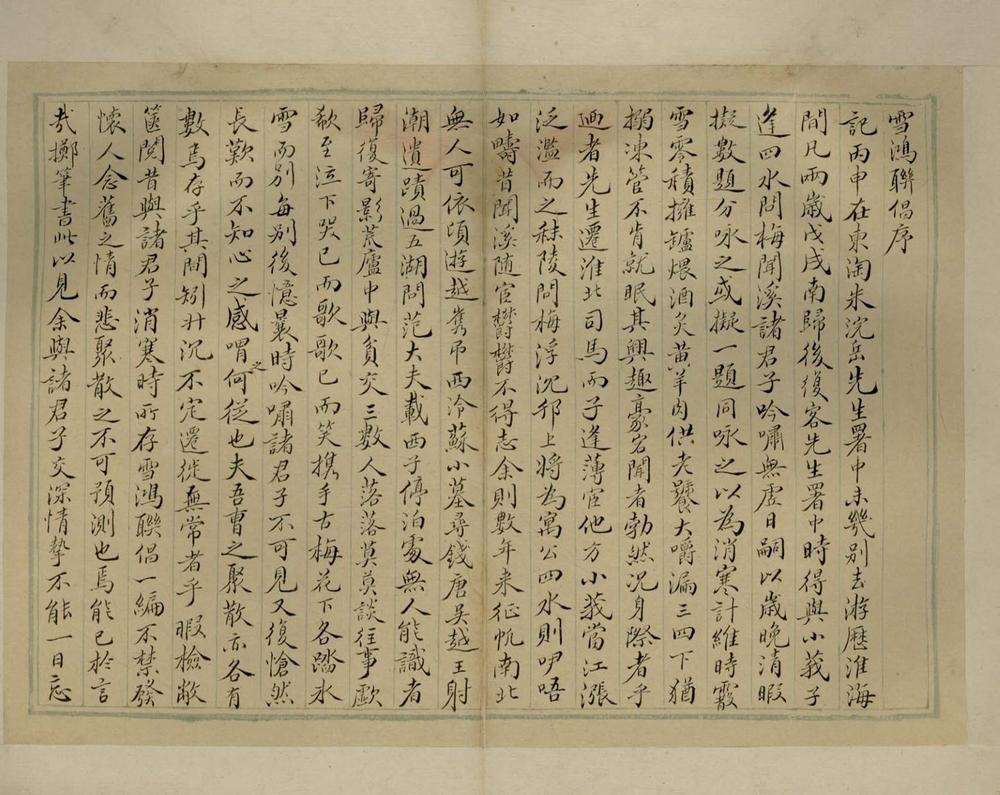 雪鴻聯倡序
記丙申在東淘朱浣岳先生署中未幾別去游歷淮海
間凡兩歲戊戌南歸後復客先生署中時得與小莪子
逢四水問梅聞溪諸君子吟嘯無虛日嗣以歲晚清暇
擬數題分咏之或擬一題同咏之以為消寒計維時霰
雪零積擁鑪煨酒炙黃羊肉供老饕大嚼漏三四下猶
搦凍管不肯就眠其興趣豪宕聞者勃然況身際者乎
乃者先生遷淮北司馬而子逢薄宦他方小莪當江漲
泛濫而之秣陵問梅浮沉邗上將為寓公四水則吚唔
如疇昔聞溪随宦欝欝不得志余則數年来征帆南北
無人可依頃遊越嶲吊西泠蘇小墓尋錢唐吳越王射
潮遺蹟過五湖問范大夫載西子停泊處無人能識者
歸復寄影荒廬中與貧交三數人落落莫莫談往事歔
欷至泣下哭已而歌歌已而笑携手古梅花下各踏氷
雪而別每別後憶曩時吟嘯諸君子不可見又復愴然
長歎而不知心之感喟之何從也夫吾曹之聚散亦各有
數焉存乎其間矧升沉不定遷徙無常者乎暇檢敝
篋閱昔與諸君子消寒時所存雪鴻聯倡一編不禁發
懷人念舊之情而悲聚散之不可預測也焉能已於言
㢤擲筆書此以見余與諸君子交深情摯不能一日忘